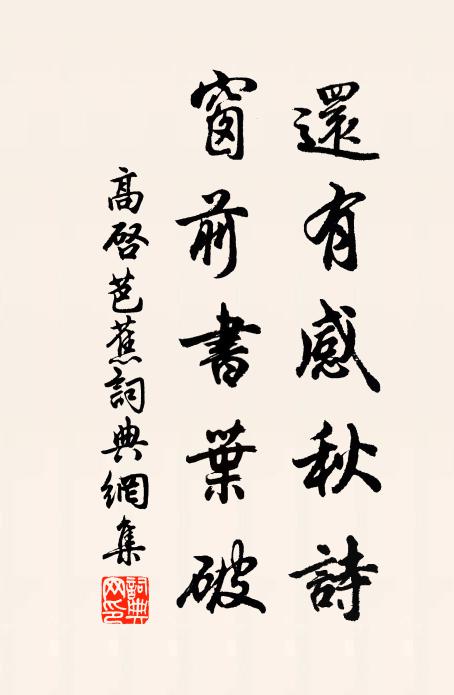 還有感秋詩
窗前書葉破
高啓芭蕉詞典網集
詞典網印